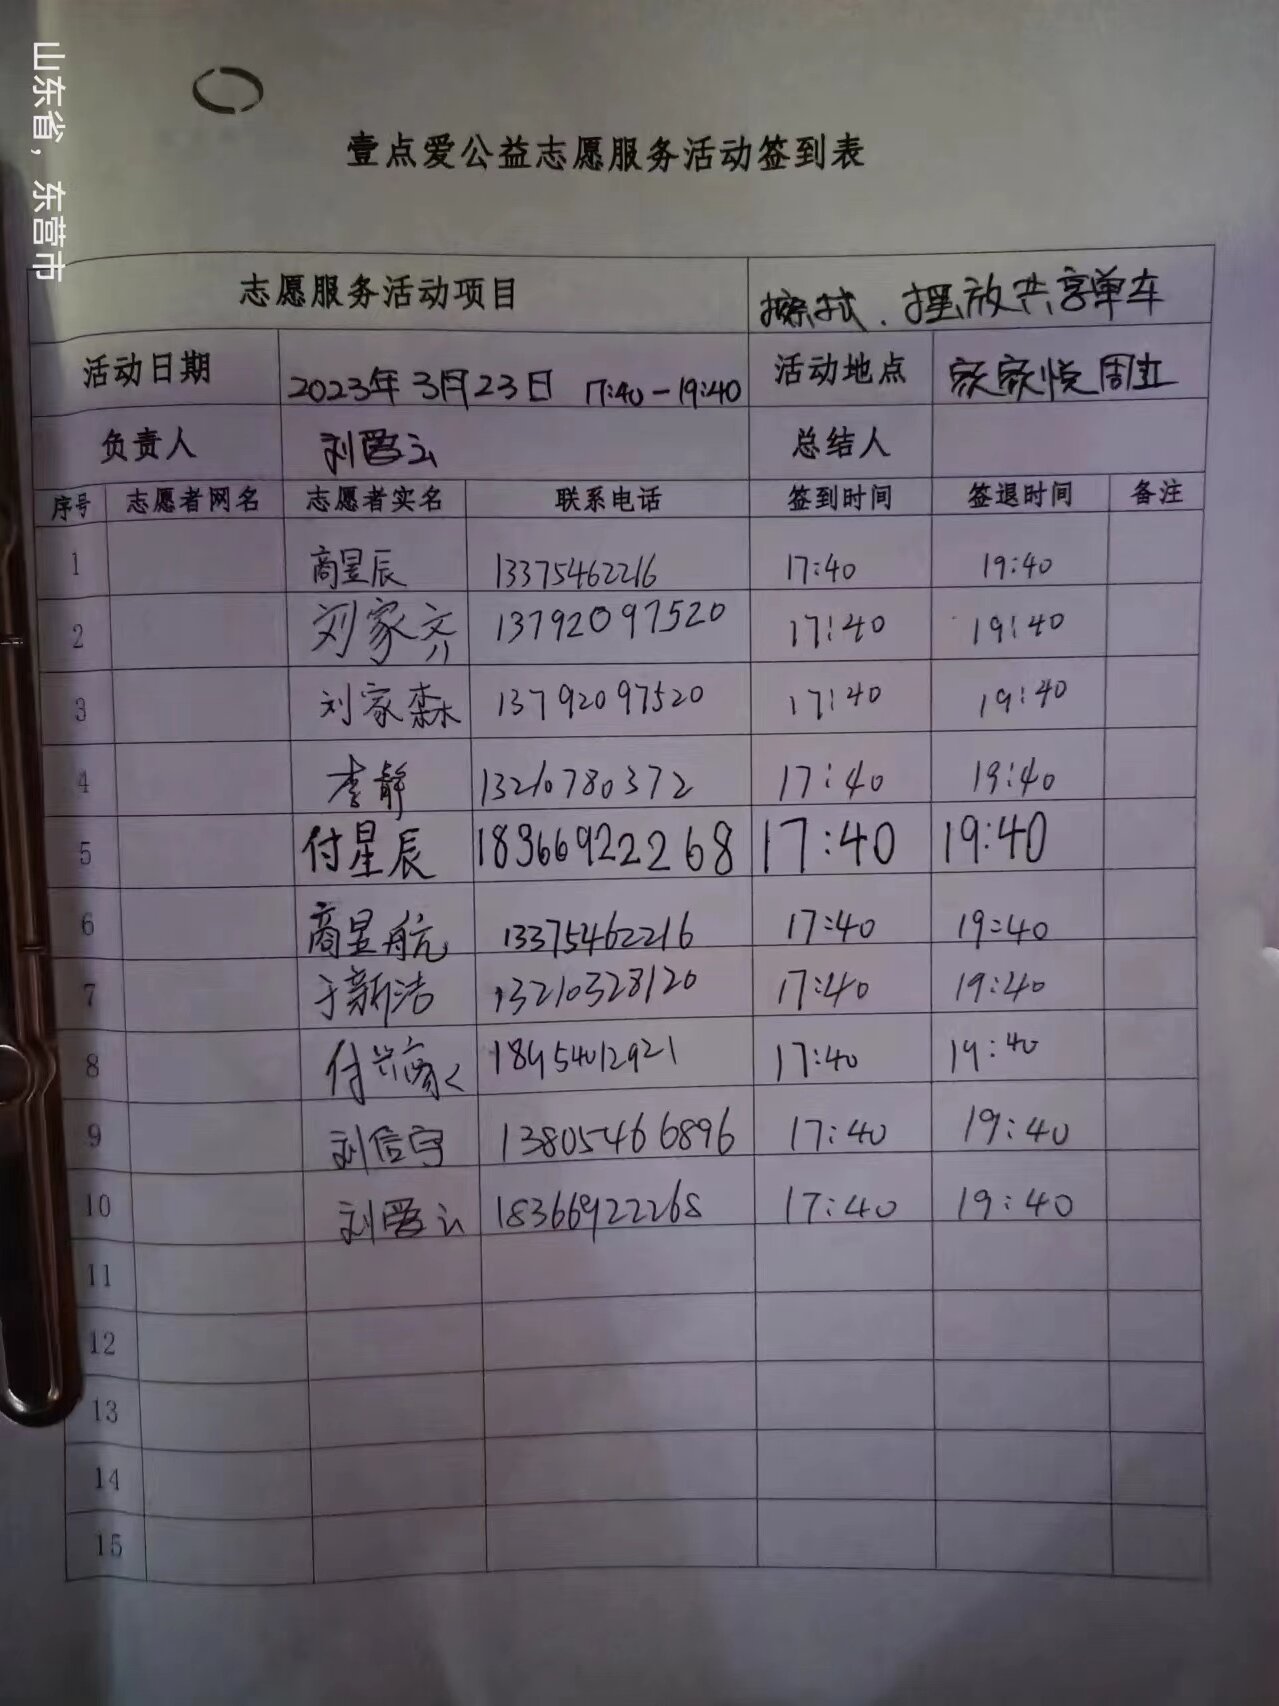 山东省，东营市
壹点爱公益志愿服务活动签到表
志愿服务活动项目 擦拭、摆放共享单车
活动日期 2023年3月23日 17:40-19:40 活动地点 家家悦周边
负责人 刘爱云 总结人
序号 志愿者网名 志愿者实名 联系电话 签到时间 签退时间 备注
1 商昱辰 13375462216 17:40 19:40
2 刘家齐 13792097520 17:40 19:40
3 刘家森 13792097520 17:40 19:40
4 李静 13210780372 17:40 19:40
5 付星辰 18366922268 17:40 19:40
6 商昱航 13375462216 17:40 19:40
7 于新浩 13210328120 17:40 19:40
8 18954012921 17:40 19:40
9 刘信守 13805466896 17:40 19:40
10 刘爱云 18366922268 17:40 19:40
11
12
13
14
15